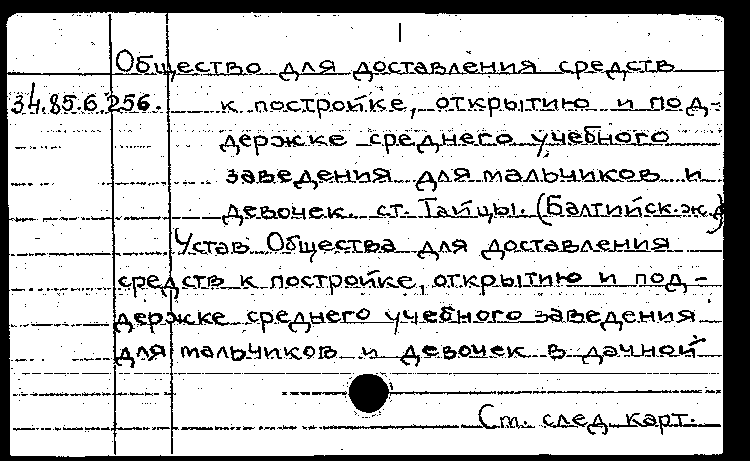 Общество для доставления средств
34.85.6.256. к постройке, открытию и под-
держке среднего учебного
заведения для мальчиков и
девочек. ст. Тайцы. (Балтийск.ж.д)
Устав Общества для доставления
средств к постройке, открытию и под-
держке среднего учебного заведения
для мальчиков и девочек в дачной
См. след. карт.